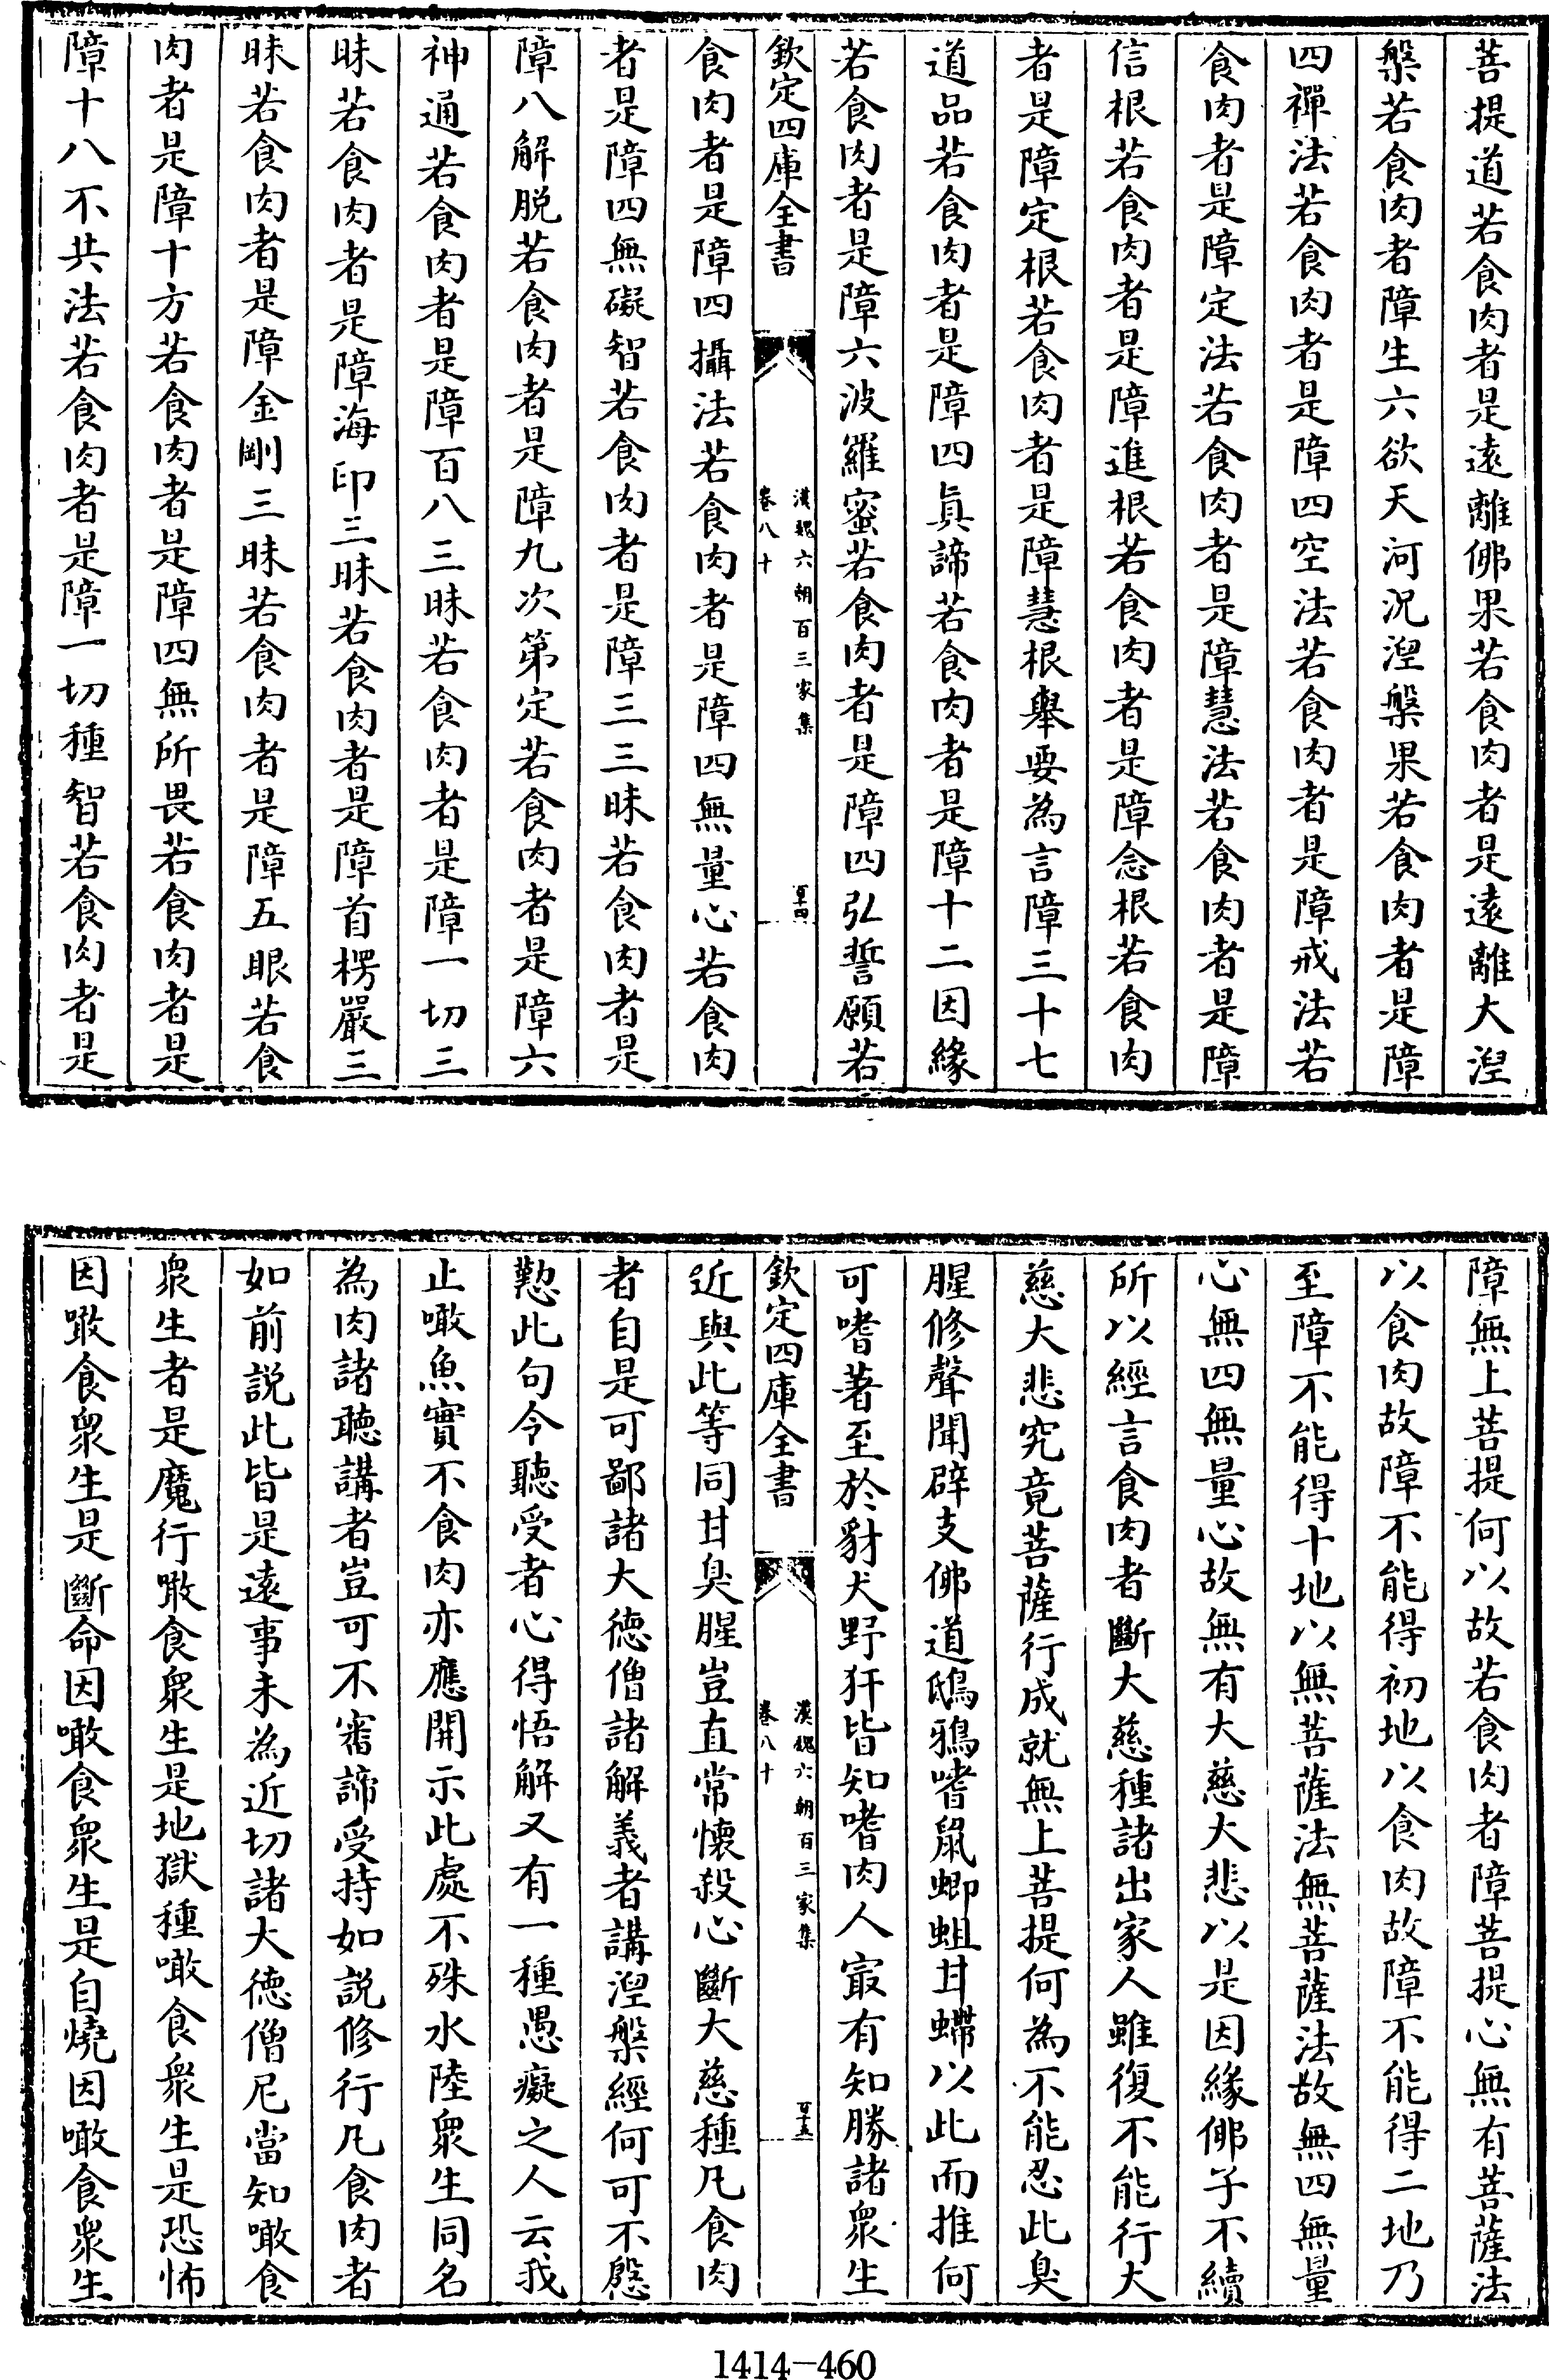 菩提道若食肉者是遠離佛果若食肉者是遠離大湼
槃若食肉者障生六欲天河況湼槃果若食肉者是障
四禪法若食肉者是障四空法若食肉者是障戒法若
食肉者是障定法若食肉者是障慧法若食肉者是障
信根若食肉者是障進根若食肉者是障念根若食肉
者是障定根若食肉者是障慧根舉要為言障三十七
道品若食肉者是障四真諦若食肉者是障十二因緣
若食肉者是障六波羅蜜若食肉者是障四弘誓願若
欽定四庫全書
漢魏六朝百三家集
卷八十
百十四
食肉者是障四攝法若食肉者是障四無量心若食肉
者是障四無礙智若食肉者是障三三昧若食肉者是
障八解脱若食肉者是障九次第定若食肉者是障六
神通若食肉者是障百八三昧若食肉者是障一切三
昧若食肉者是障海印三昧若食肉者是障首楞嚴三
昧若食肉者是障金剛三昧若食肉者是障五眼若食
肉者是障十方若食肉者是障四無所畏若食肉者是
障十八不共法若食肉者是障一切種智若食肉者是
障無上菩提何以故若食肉者障菩提心無有菩薩法
以食肉故障不能得初地以食肉故障不能得二地乃
至障不能得十地以無菩薩法無菩薩法故無四無量
心無四無量心故無有大慈大悲以是因緣佛子不續
所以經言食肉者斷大慈種諸出家人雖復不能行大
慈大悲究竟菩薩行成就無上菩提何為不能忍此臭
腥修聲聞辟支佛道鴟鴉嗜鼠蝍蛆甘螮以此而推何
可嗜著至於豺犬野犴皆知嗜肉人㝡有知勝諸衆生
欽定四庫全書
漢魏六朝百三家集
卷八十
百十五
近與此等同甘臭腥豈直常懐殺心斷大慈種凡食肉
者自是可鄙諸大徳僧諸解義者講湼槃經何可不慇
懃此句令聽受者心得悟解又有一種愚癡之人云我
止噉魚實不食肉亦應開示此處不殊水陸衆生同名
為肉諸聽講者豈可不審諦受持如説修行凡食肉者
如前説此皆是遠事未為近切諸大徳僧尼當知噉食
衆生者是魔行噉食衆生是地獄種噉食衆生是恐怖
因噉食衆生是斷命因噉食衆生是自燒因噉食衆生
1414-460